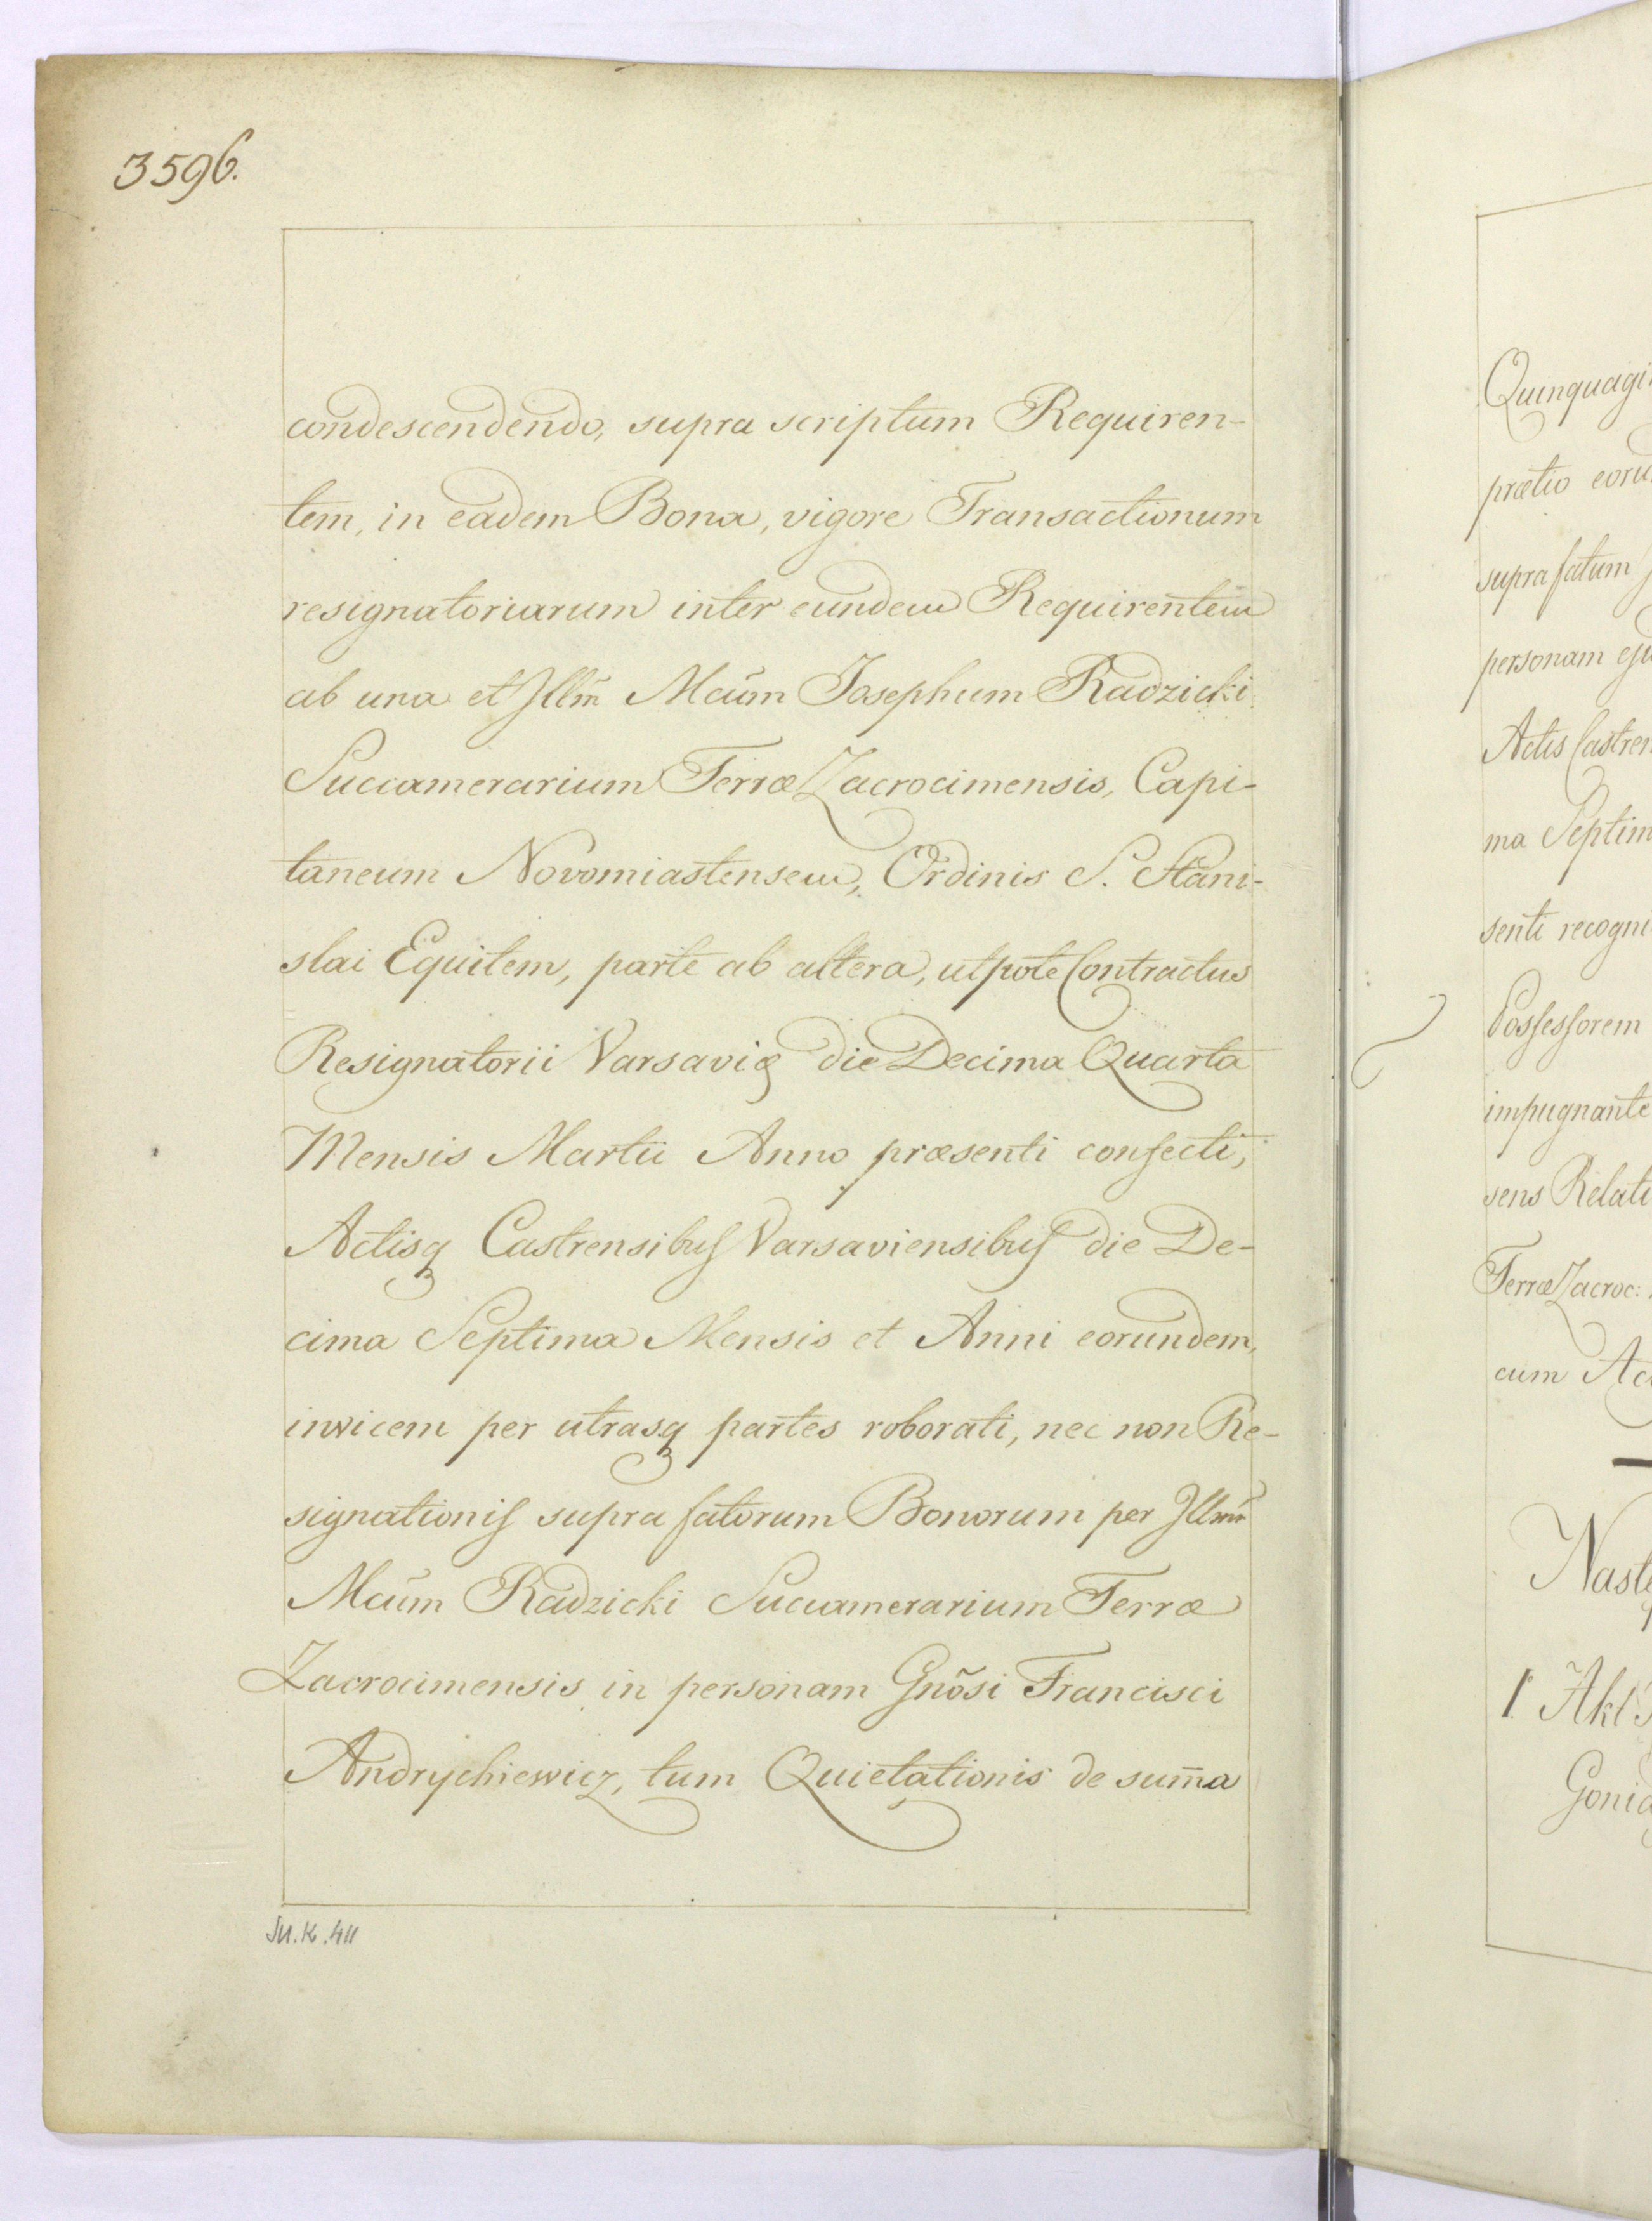 3596.
condescendendo, supra scriptum Requiren-
tem, in eadem Bona, vigore Transactionum
resignatoriarum inter eundem Requirentem
ab una et Illm̃ Mcūm Josephum Radzicki
Succamerarium Terræ Zacrocimensis, Capi-
taneum Novomiastensem, Ordinis S. Stani-
slai Equitem, parte ab altera, utpote Contractus
Resignatorii Varsavię die Decima Quarta
Mensis Martii Anno præsenti confecti,
Actisq Castrensibus Varsaviensibus die De-
cima Septima Mensis et Anni eorundem,
invicem per utrasq partes roborati, nec non Re-
signationis supra fatorum Bonorum per Illm̃
Mcūm Radzicki Succamerarium Terræ
Zacrocimensis in personam Gnõsi Francisci
Andrychiewicz, tum Quietationis de sum̄a
Quinquagi
prætio eoru
supra fatum
personam eju
Actis Castren
ma Septim
senti recogni
Possessorem
impugnante
sens Relati
Terræ Zacroc:
cum Ac
Nast
1 Akt
Goni